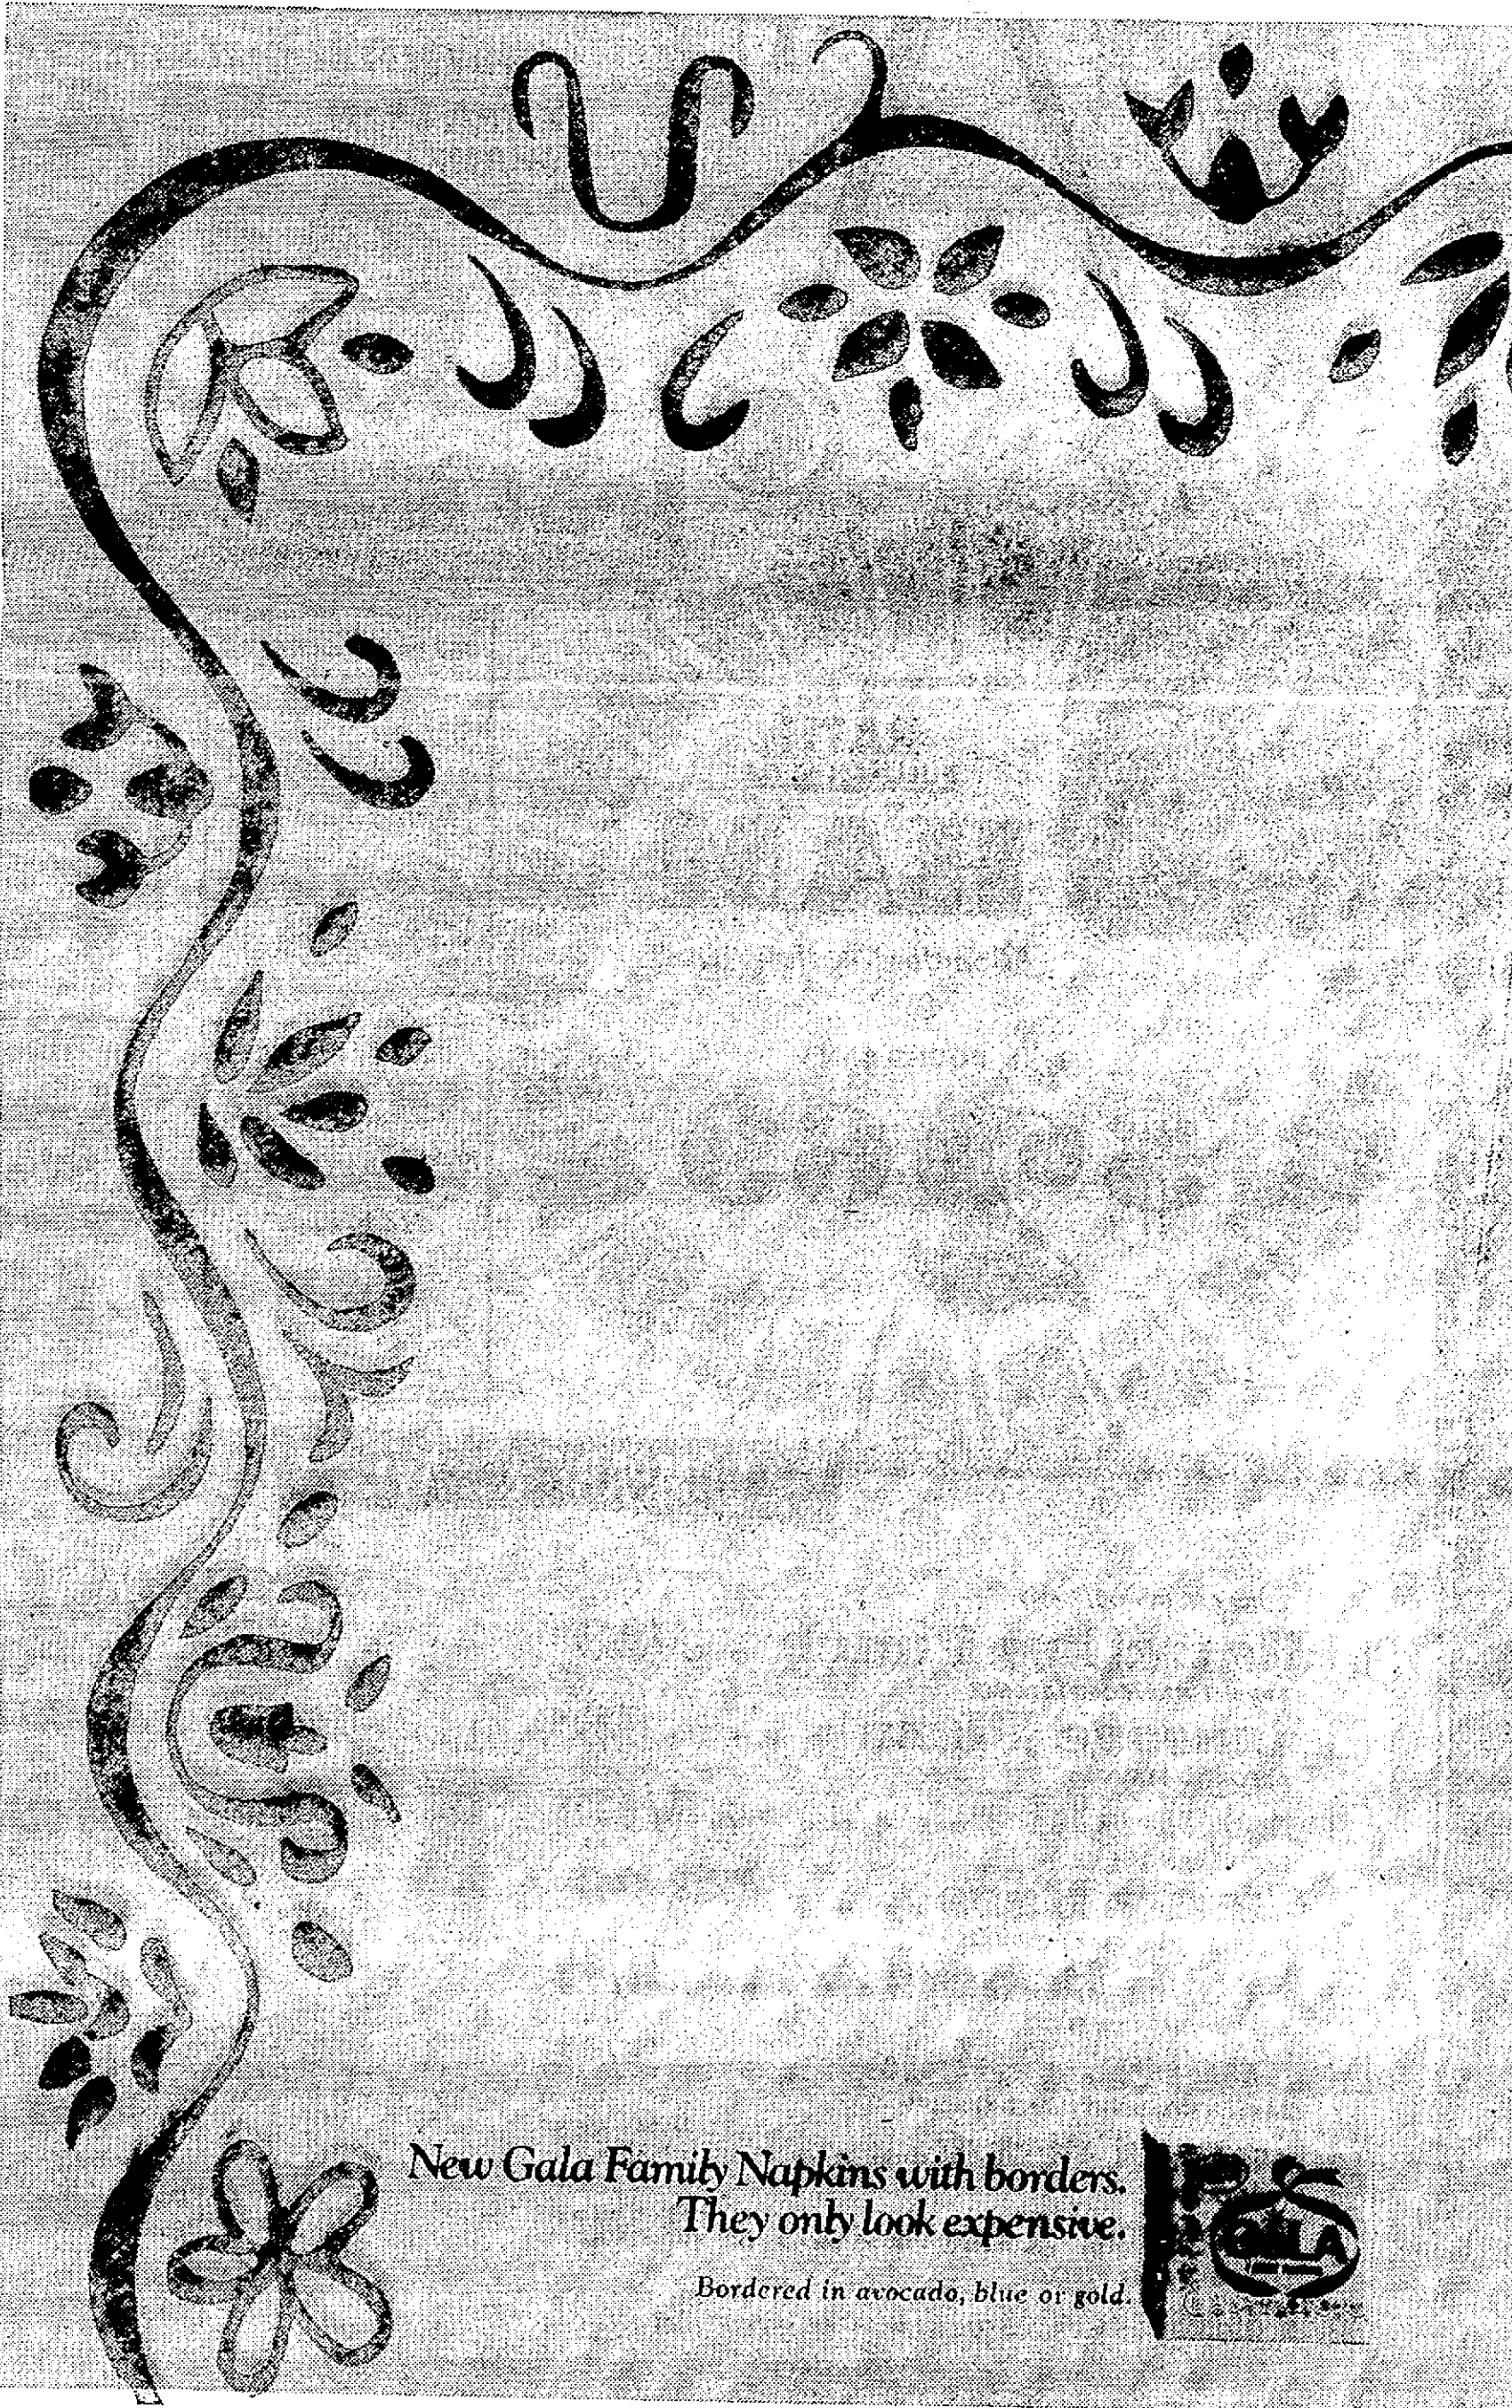 New Gala Family Napkins with borders.
They only look expensive.
Bordered in avocado, blue or gold.
GALA